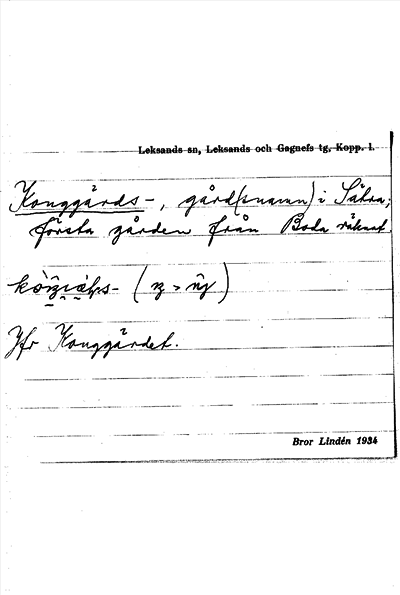 Leksands sn, Leksands och Gagnefs tg, Kopp. l.
Konggårds-, gård(snamn) i Säkra;
första gården från Boda räknat.
Jfr Konggårdet.
Bror Lindén 1934